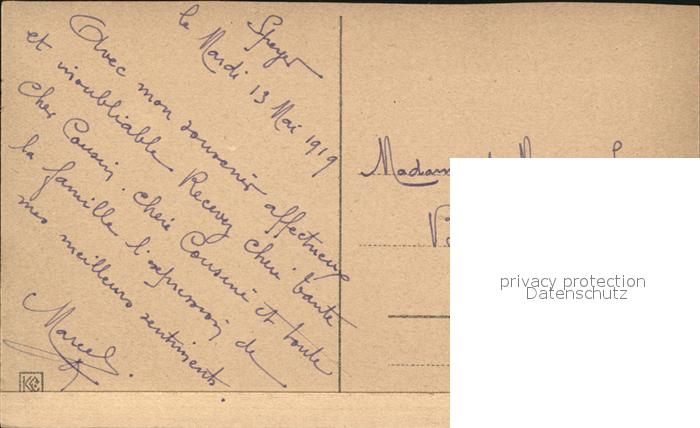 Speyer
le Mardi 13 Mai 1919
Avec mon souvenir affectueux
et inoubliable Recevez chère tante
Cher Cousin. Chère Cousine et toute
la famille l'expression de
mes meilleurs sentiments.
Marcel.
Madame
privacy protection
Datenschutz